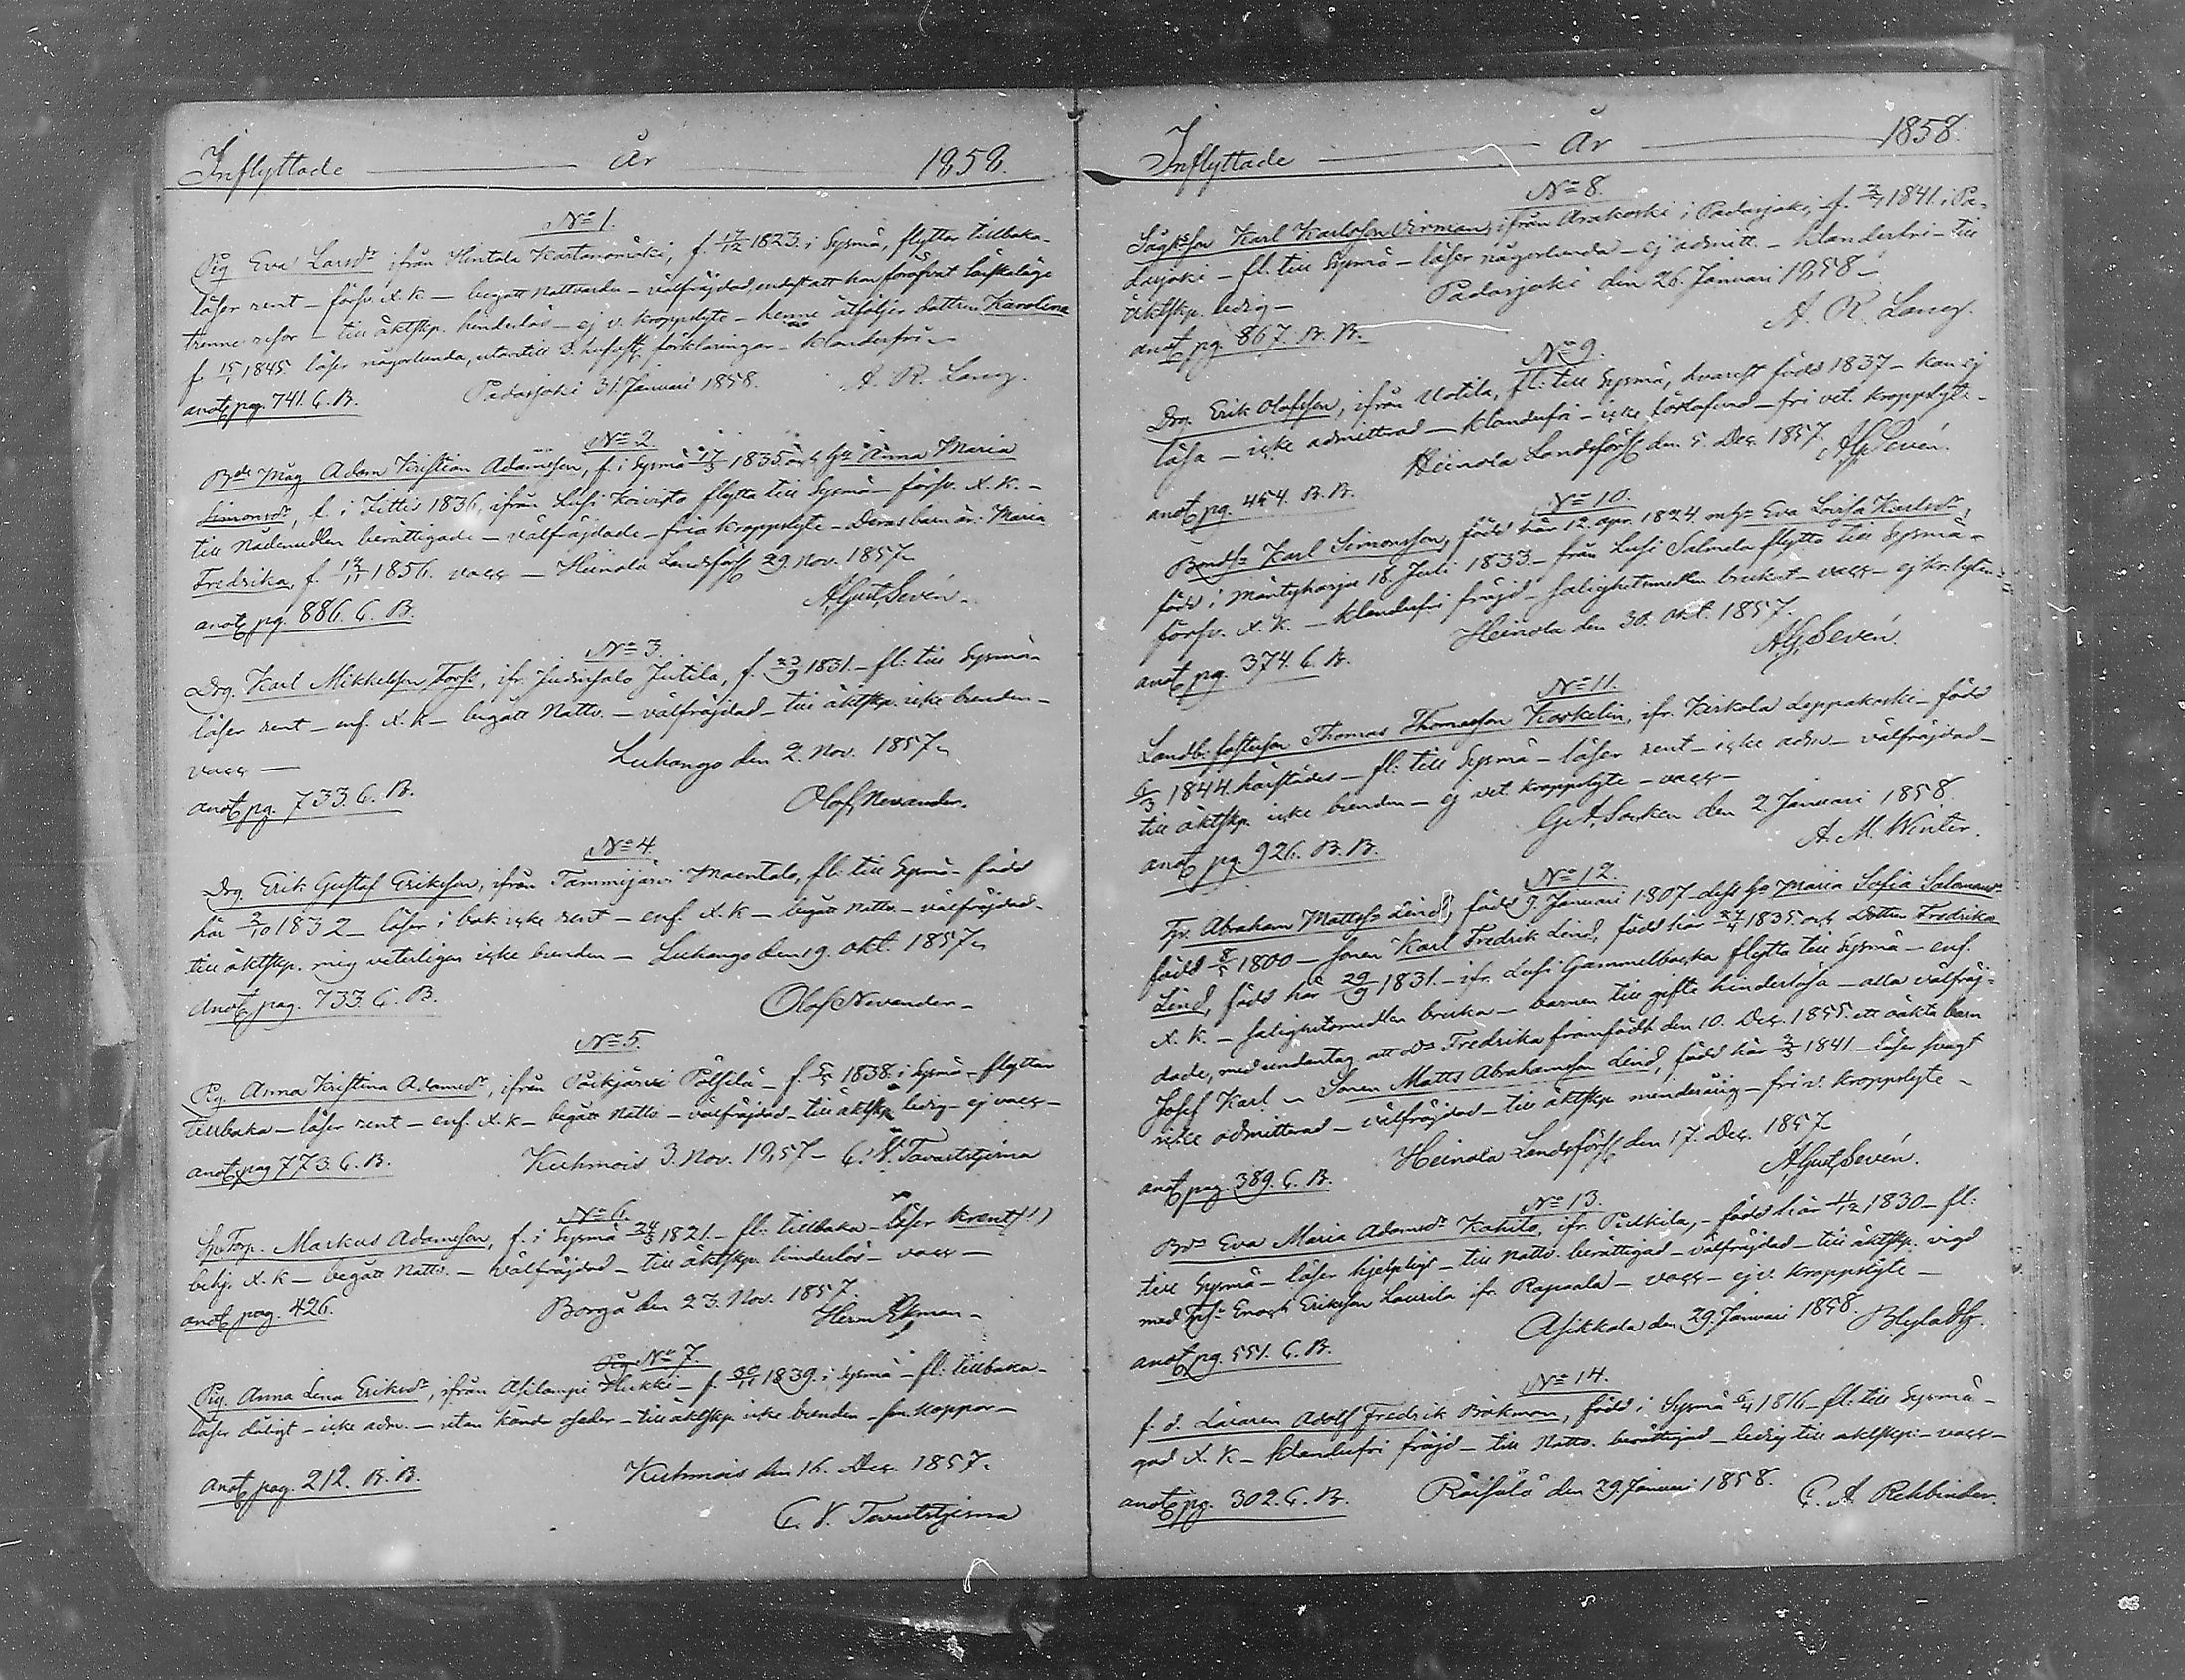 Inflyttade År 1858.
No 1.
Pig. Eva Larsdr ifrån Hintola Kartanomäki, f. 17/12 1823. i Sysmä, flyttar tillbaka-
läser rent – försv. X. K – begått nattvarden – välfräjdad, endast att hon föröfvat lönskaläge
trenne resor – till äktskp. hinderlös – ej v. kroppslyte – henne åtföljer dottren Karolina
f. 15/1 1845 läser någorlunda, utantill 3. hufvudst. förklaringar – klanderfri –
anot. pag. 741. C. B. Padasjoki 31. Januari 1858. A. R. Lang.
No 2.
Bde Måg Adam Kristian Adamsson, f. i Sysmä 17/5 1835. och Ha Anna Maria
Simonsdr, f. i Jittis 1836, ifrån Lusi Koivisto flytta till Sysmä – försv. X. K. –
till Nådemedlen berättigade – välfräjdade – fria kroppslyte – Deras barn är: Maria
Fredrika, f. 12/11 1856. vacc – Heinola Landsförs. 29. Nov. 1857
A. Gust. Sevén.
anot. pg. 886. C. B.
No 3.
Drg. Karl Mikkelsson Forss, ifr. Judinsalo Jutila, f. 23/9 1831. – fl: till Sysmä –
läser rent – enf. X. K – begått Nattv. – välfräjdad – till äktskp. icke bunden –
vacc – Luhango den 2. Nov. 1857
anot. pg. 733. C. B. Olof Nevander.
No 4.
Drg. Erik Gustaf Eriksson, ifrån Tammijärvi Maentalo, fl: till Sysmä – född
här 2/10 1832 – läser i bok icke rent – enf. X. K – begått Nattv. – välfräjdad –
till äktskp. mig veterligen icke bunden – Luhango den 19. Okt. 1857
Anot. pag. 733. C. B. Olof Nevander –
No 5.
Pig. Anna Kristina Adamsdr, ifrån Päijärvi Pölsilä – f. 5/5 1838. i Sysmä – flyttar
tillbaka – läser rent – enf. X. K – begått Nattv – välfräjdad – till äktskp ledig – ej vacc –
anot. pag 773. C. B. Kuhmois 3. Nov. 1857 – C. V. Tavaststjerna
No 6.
Sp. Torp. Markus Adamsson, f. i Sysmä 24/3 1821. – fl: tillbaka – läser krent (!)
behj. X. K – begått Nattv. – välfräjdad – till äktskp. hinderlös – vacc –
anot. pag. 426. Borgå den 23. Nov. 1857.
Herm Ekman –
No 7.
Pig. Anna Lena Eriksdr, ifrån Asilampi Hukki – f. 30/11 1839. i Sysmä – fl: tillbaka –
läser dåligt – icke adm. – utan kände seder – till äktskp. icke bunden – sm. koppor –
anot. pag. 212. B. B. Kuhmois den 16. Dec. 1857.
C. V. Tavaststjerna
Inflyttade År 1858.
No 8.
Karl Karlsson Virman, ifrån Arrakoski i Padasjoki, f. 2/1 1841. i Pa-
dasjoki – fl: till Sysmä – läser någorlunda – ej admitt. – klanderfri – till
äktskp. ledig – Padasjoki den 26. Januari 1858 –
anot pg. 867. B. B. A. R. Lang.
No 9.
Drg. Erik Olofsson, ifrån Uotila, fl: till Sysmä, hvarest född 1837 – kan ej
läsa – icke admitterad – klanderfri – icke förlofvad – fri vet. kroppslyte –
Heinola Landsförs. den 5. Dec. 1857. A. G. Sevén.
anot pg. 454. B. B.
No 10.
Karl Simonsson, född här 12. apr. 1824. m. Ha Eva Lovisa Karlsdr,
född i Mäntyharju 18. Juli 1833 – från Lusi Salmela flytta till Sysmä –
försv. X. K. – klanderfri fräjd – salighetsmedlen brukat – vacc – ej kr. lyten
Heinola den 30. Okt. 1857.
anot pg. 374. C. B. A. G. Sevén.
No 11.
Landb. fosterson Thomas Thomasson Koskelin, ifr. Kirkola Leppäkoski – född
6/3 1844. härstädes – fl: till Sysmä – läser rent – icke adm – välfräjdad –
till äktskp. icke bunden – ej vet. kroppslyte – vacc –
G. A. Socken den 2. Januari 1858.
anot pg. 926. B. B. A. M. Winter.
No 12.
Tpr. Abraham Mattsson Lind, född 9. Januari 1807 – dess Ha Maria Sofia Salomonsdr
född 8/5 1800 – sonen Karl Fredrik Lind, född här 24/4 1835. och Dottren Fredrika
Lind, född här 29/9 1831. – ifr. Lusi Gammelbacka flytta till Sysmä – enf.
X. K. – salighetsmedlen bruka – barnen till gifte hinderlösa – alla välfräj-
dade, med undantag att Dn Fredrika framfödt den 10. Dec. 1855. ett oäkta barn
Josef Karl – Sonen Matts Abrahamsson Lind, född här 2/3 1841 – läser svagt
icke admitterad – välfräjdad – till äktskp minderårig – fri v. kroppslyte –
Heinola Landsförs. den 17. Dec. 1857
anot pag. 389. C. B. A. Gust. Sevén.
No 13.
Eva Maria Adamsdr Kahila, ifr. Pulkila, – född här 4/12 1830 – fl:
till Sysmä – läser hjelpligt – till nattv. berättigad – välfräjdad – till äktskp. vigd
med Enoch Eriksson Laurila ifr. Rapaala – vacc – ej v. kroppslyte –
Asikkala den 29. Januari 1858.
anot pg. 551. C. B.
No 14.
f. d. Läraren Adolf Fredrik Bökman, född i Sysmä 6/4 1816 – fl: till Sysmä –
god X. K – klanderfri fräjd – till Nattv. berättigad – ledig till äktskp – vacc –
anot pg. 302. C. B. Räisälä den 29. Januari 1858. C. A. Rehbinder.